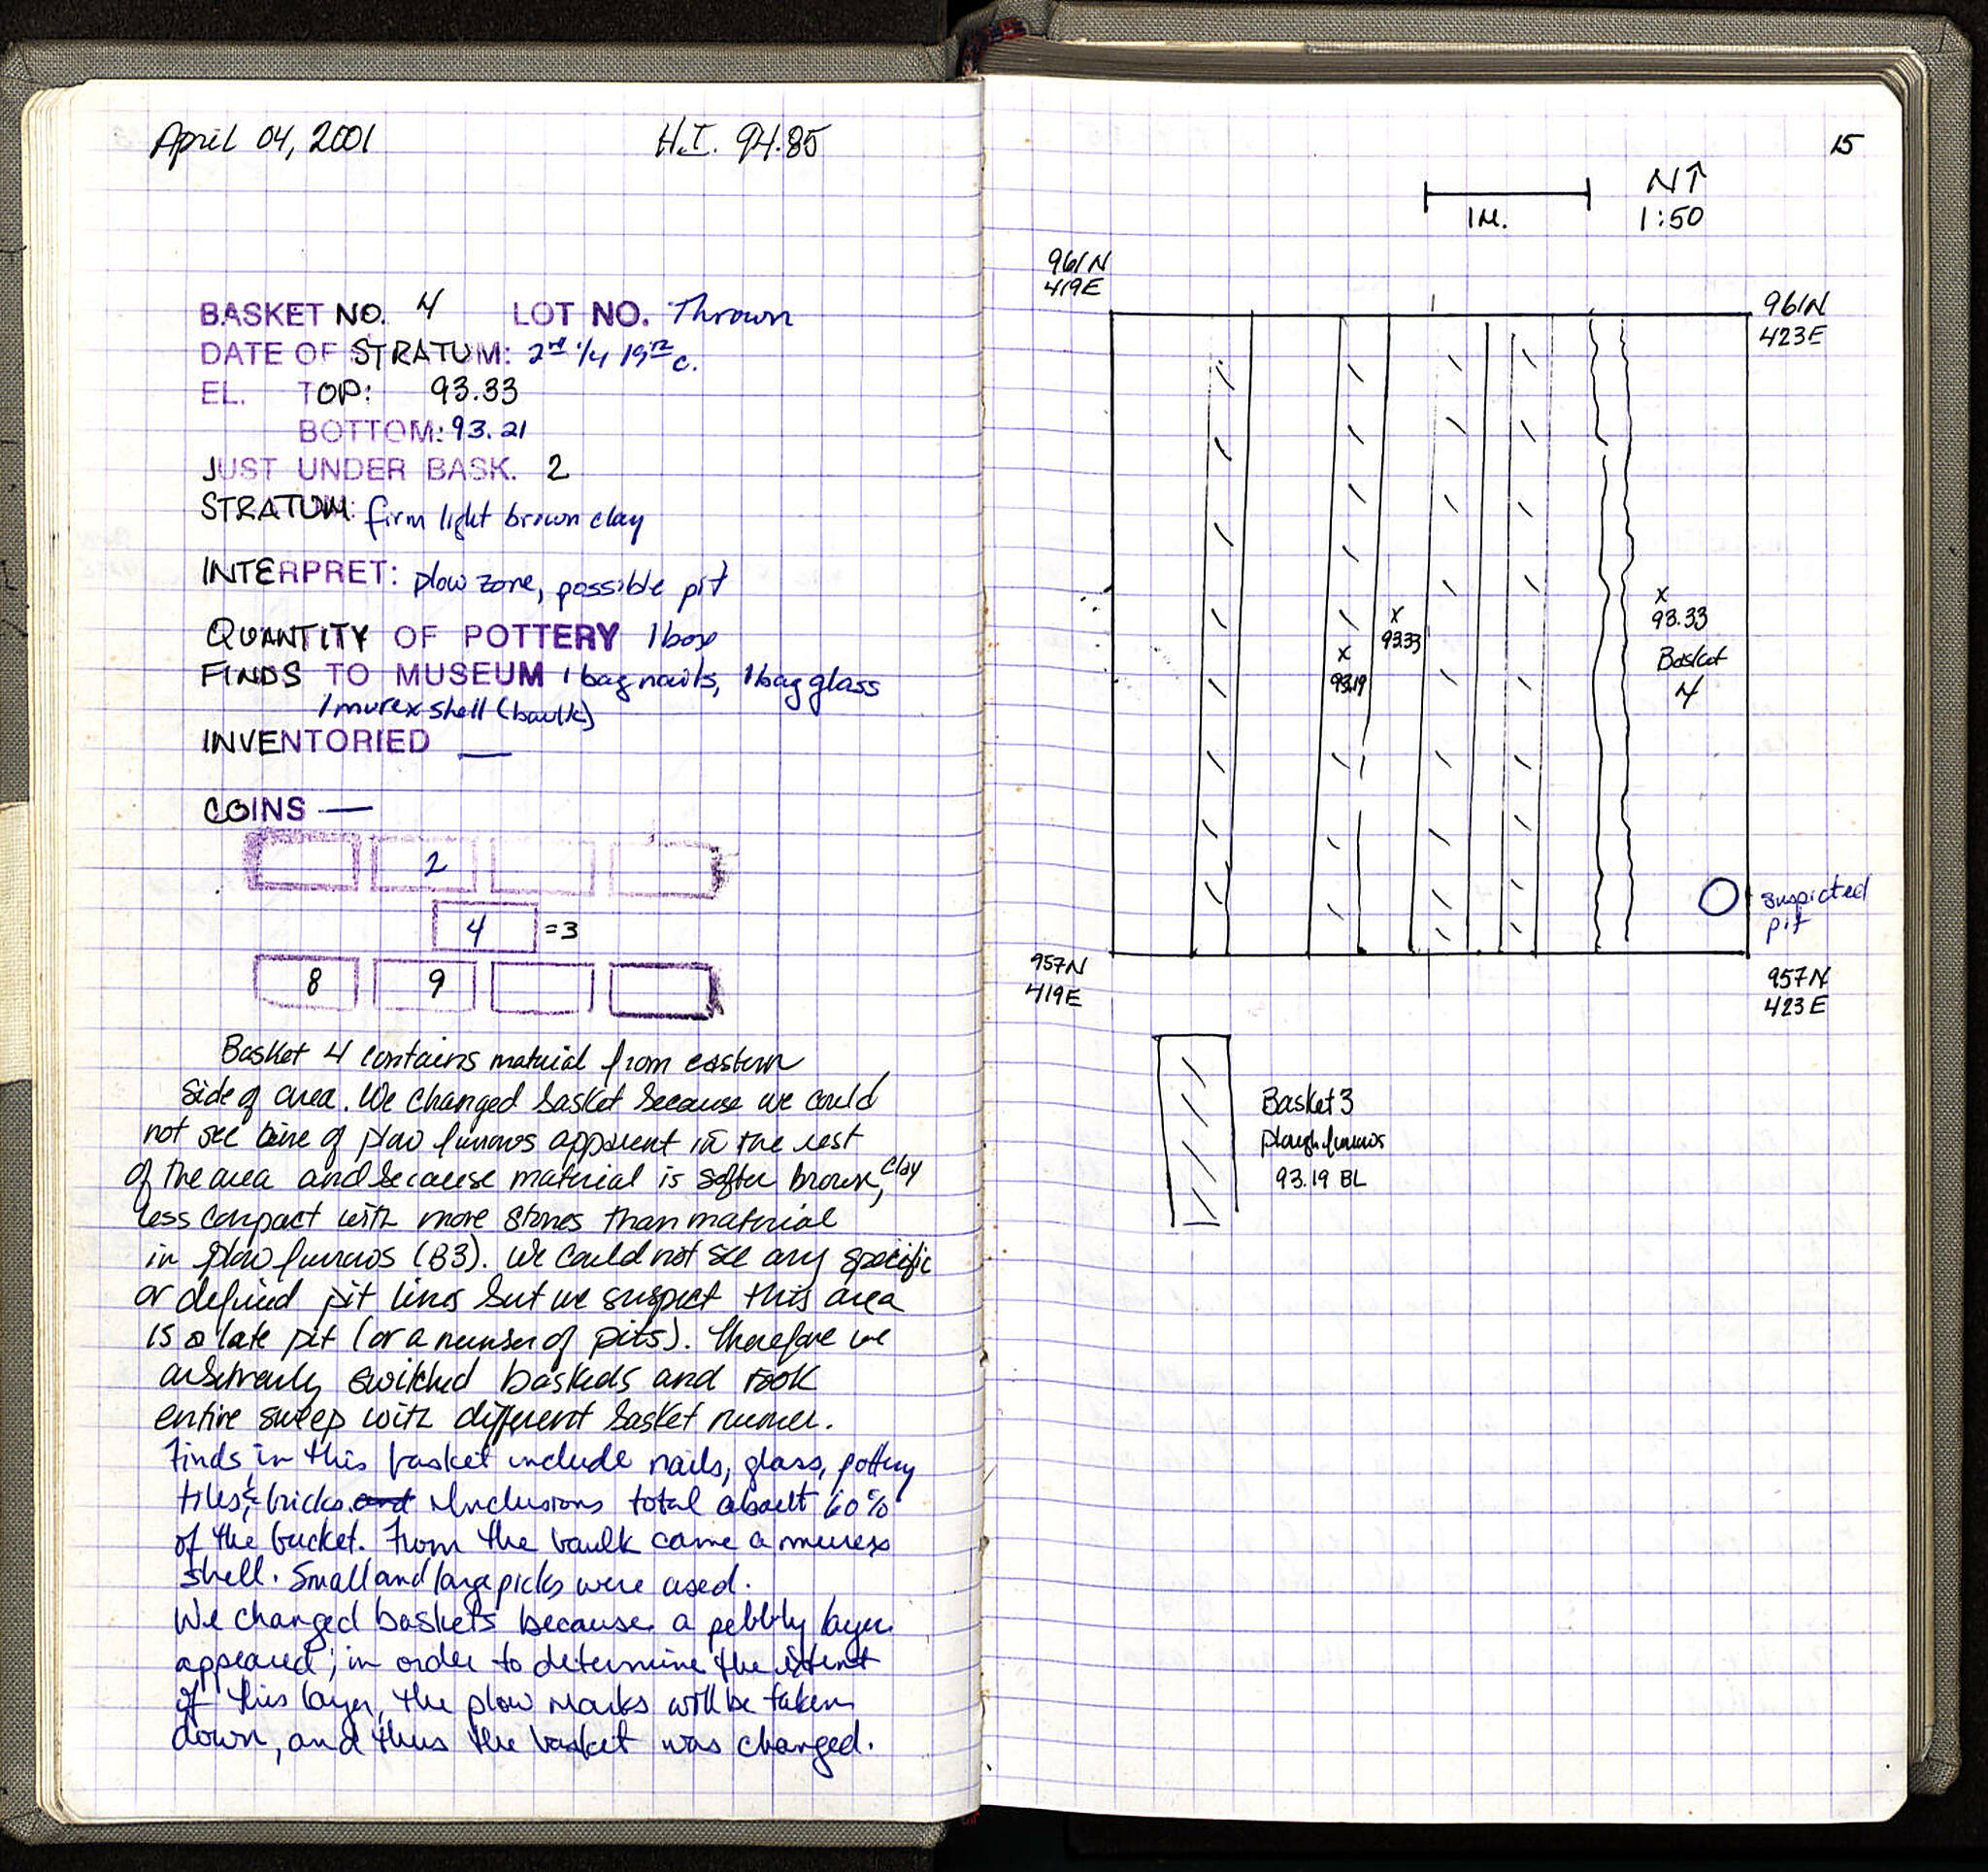 April 04, 2001 H.I. 94.85
BASKET NO. 4 LOT NO. Thrown
DATE OF STRATUM: 2nd 1/4 19th c.
EL. TOP: 93.33
BOTTOM: 93.21
JUST UNDER BASK. 2
STRATUM: firm light brown clay
INTERPRET: plow zone, possible pit
QUANTITY OF POTTERY 1 box
FINDS TO MUSEUM 1 bag nails, 1 bag glass
1 murex shell (baulk)
INVENTORIED —
COINS —
2
4 =3
8 9
Basket 4 contains material from eastern
side of area. We changed basket because we could
not see line of plow furrows apparent in the rest
of the area and because material is softer brown, clay
less compact with more stones than material
in plow furrows (B3). We could not see any specific
or defined pit lines but we suspect this area
is a late pit (or a number of pits). Therefore we
arbitrarily switched baskets and took
entire sweep with different basket numer.
Finds in this basket include nails, glass, pottery
tiles, & bricks. and Inclusions total about 60%
of the bucket. From the baulk came a murex
shell. Small and large picks were used.
We changed baskets because a pebbly layer
appeared; in order to determine the extent
of this layer, the plow marks will be taken
down, and thus the basket was changed.
15
N↑
1M. 1:50
961N
419E
961N
423E
x
93.33
x
93.19
x
93.33
Basket
4
suspected
pit
957N
419E
957N
423E
Basket 3
plough furrows
93.19 BL